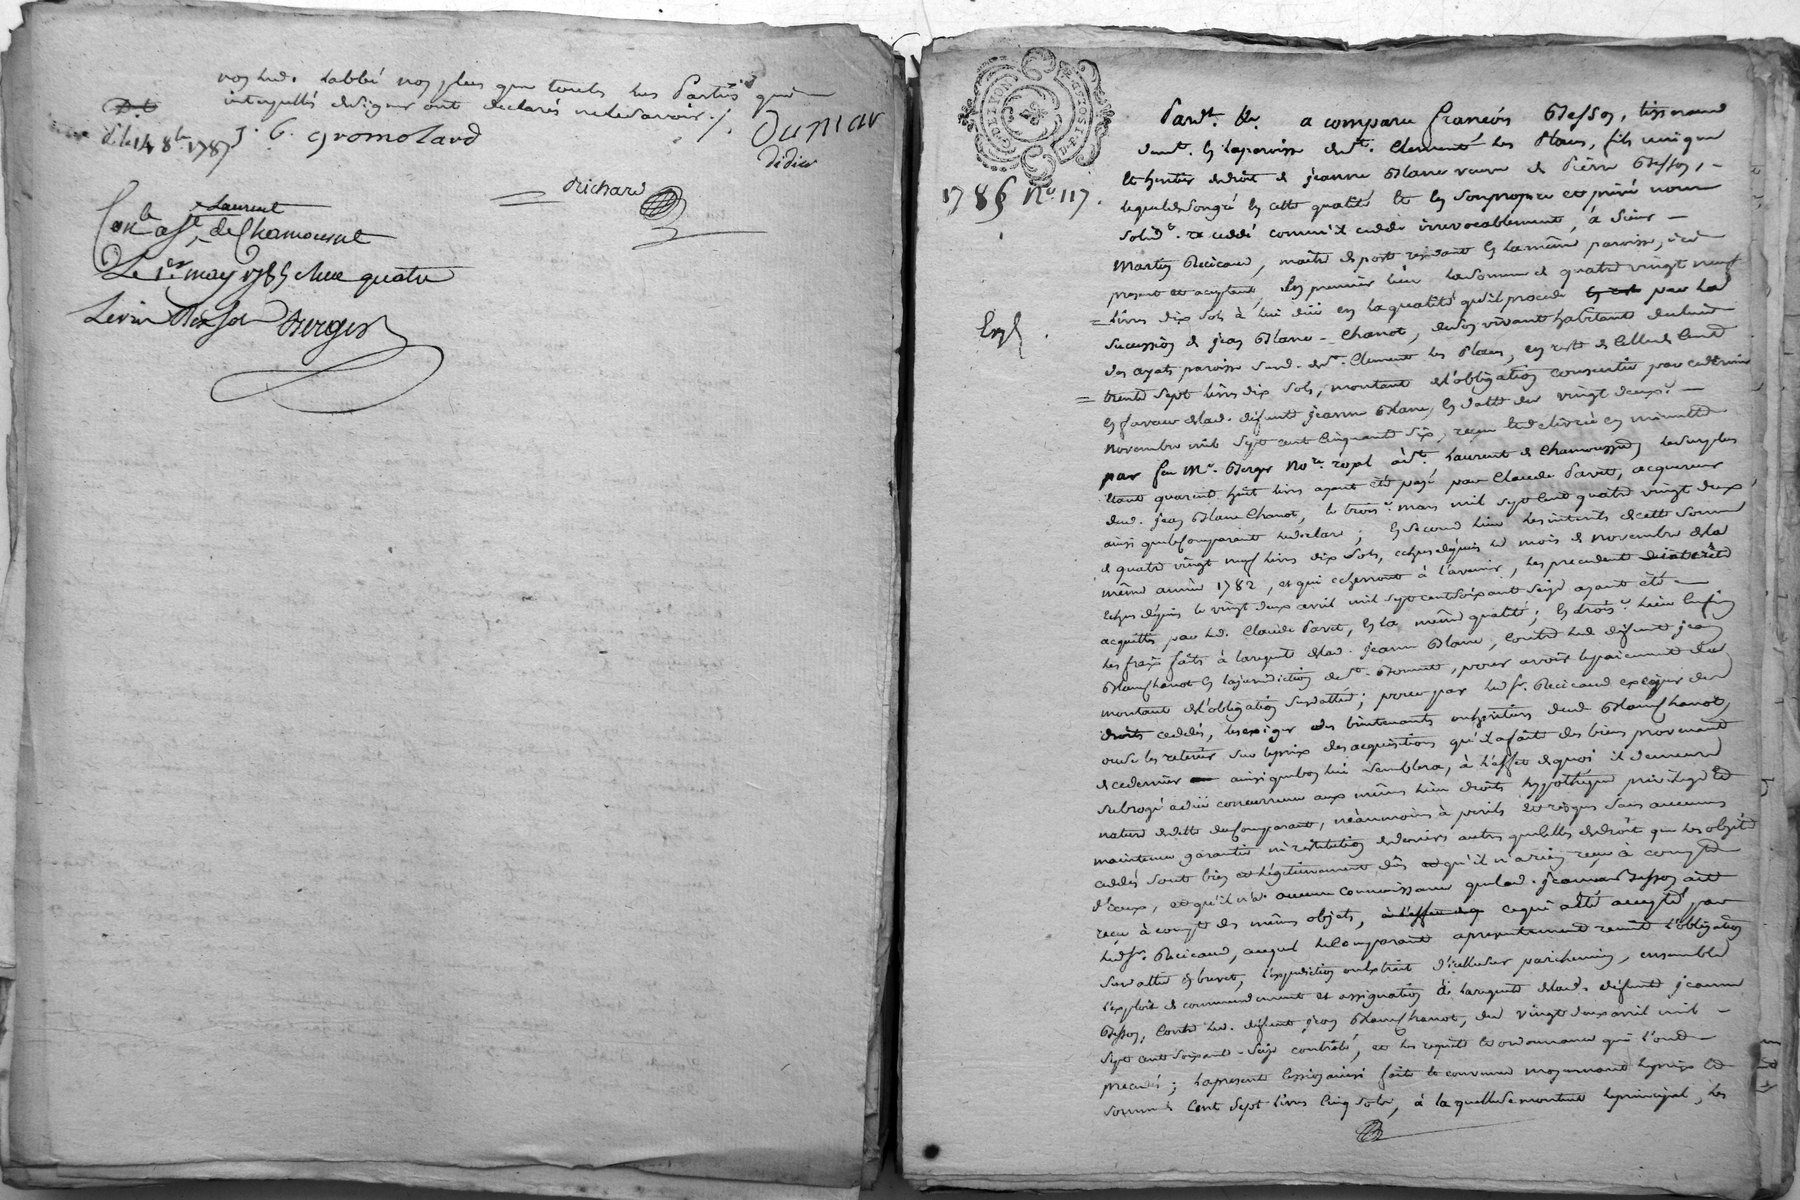 nos led. labbé non plus que toutes les Parties qui
interpellés de signer ont déclarés ne le savoir ./.
D. le 14 8bre 1787 J. C. Gromolard
Dupiar
Didier
Richard
Laurent
Con.le a St de Chamousset
Le 1er may 1785 Reçu quatre
Berger
G. DE LYON
1786 No. 117.
Exp.
Pardt. &a. a comparu François Besson, tisserand
demt. en la paroisse de St. Clement les Places, fils unique
et heritier de droit de jeanne Blanc veuve de Pierre Besson, -
lequel de son gré en cette qualité et en son propre et privé nom
solide. a cédé comme il cede irrevocablement, à sieur -
Martin Recicaud, maitre de poste residant en la même paroisse, ici
present et acceptant, En premier lieu la somme de quatre vingt neuf
= livres dix sols à lui düe en la qualité qu'il procede par la
succession de jean Blanc-Chanot, de son vivant habitant du lieu
des ayats paroisse sud. de St. Clement les Places, en reste de celle de Cent
= trente sept livres dix sols, montant de l'obligation consentie par ce dernier
en faveur de lad. défunte jeanne Blanc, en datte du vingt deux.e -
novembre mil sept cent cinquante six, reçue et delivrée en minutte
par feu Me. Berger Nore. royal à St. Laurent de Chamousset, le surplus
etant quarente huit livres ayant été payé par Claude Paret, acquereur
dud. jean Blanc Chanot, le trois.e mars mil sept cent quatre vingt deux,
ainsi que le Comparant le declare ; En second lieu les interets de cette somme
de quatre vingt neuf livres dix sols, echus depuis le mois de novembre de la
même année 1782, et qui echerront à l'avenir, les precedent
echus depuis le vingt deux avril mil sept cent soixante seize ayant été -
acquittés par led. Claude Paret, en la même qualité ; En trois.e lieu Enfin
les fraix faits à la requete de lad. jeanne Blanc, contre led. défunt jean
Blanc Chanot en la jurisdiction de St. Bonnet, pour avoir le paiement du
montant de l'obligation susdattée ; pour par led. Sr. Recicaud exiger des
droits cedés, les exiger des bientenants ou heritiers dud. Blanc Chanot,
ou se les retenir sur le prix des acquisitions qu'il a fait des biens provenant
de ce dernier ainsi que bon lui semblera, à l'effet de quoi il demeure
subrogé a düe concurrence aux mêmes lieu droits hypothèque privilege et
nature de dette du Comparant, néanmoins à perils et risques sans aucune
maintenue garantie ni restitution de deniers autres que celles de droit que les objets
cedés sont bien et legitimement dûs et qu'il n'a rien reçu à compte
d'iceux, et qu'il n'a aucune connaissance que lad. jeanne Besson ait
reçu à compte des mêmes objets, ce qui a été accepté par
led. Sr. Recicaud, auquel le Comparant a presentement remit l'obligation
susdattée en brevet, l'expedition ou extrait d'icelle sur parchemin, ensemble
l'exploit de commandement et assignation à la requete de lad. défunte jeanne
Besson, contre led. défunt jean Blanc Chanot, du vingt deux avril mil -
sept cent soixante-seize contrôlé, et les requete et ordonnance qui l'ont -
precedé ; la presente Cession ainsi faite et convenue moyennant le prix et
somme de Cent sept livres Cinq sols, à laquelle se montent le principal, les